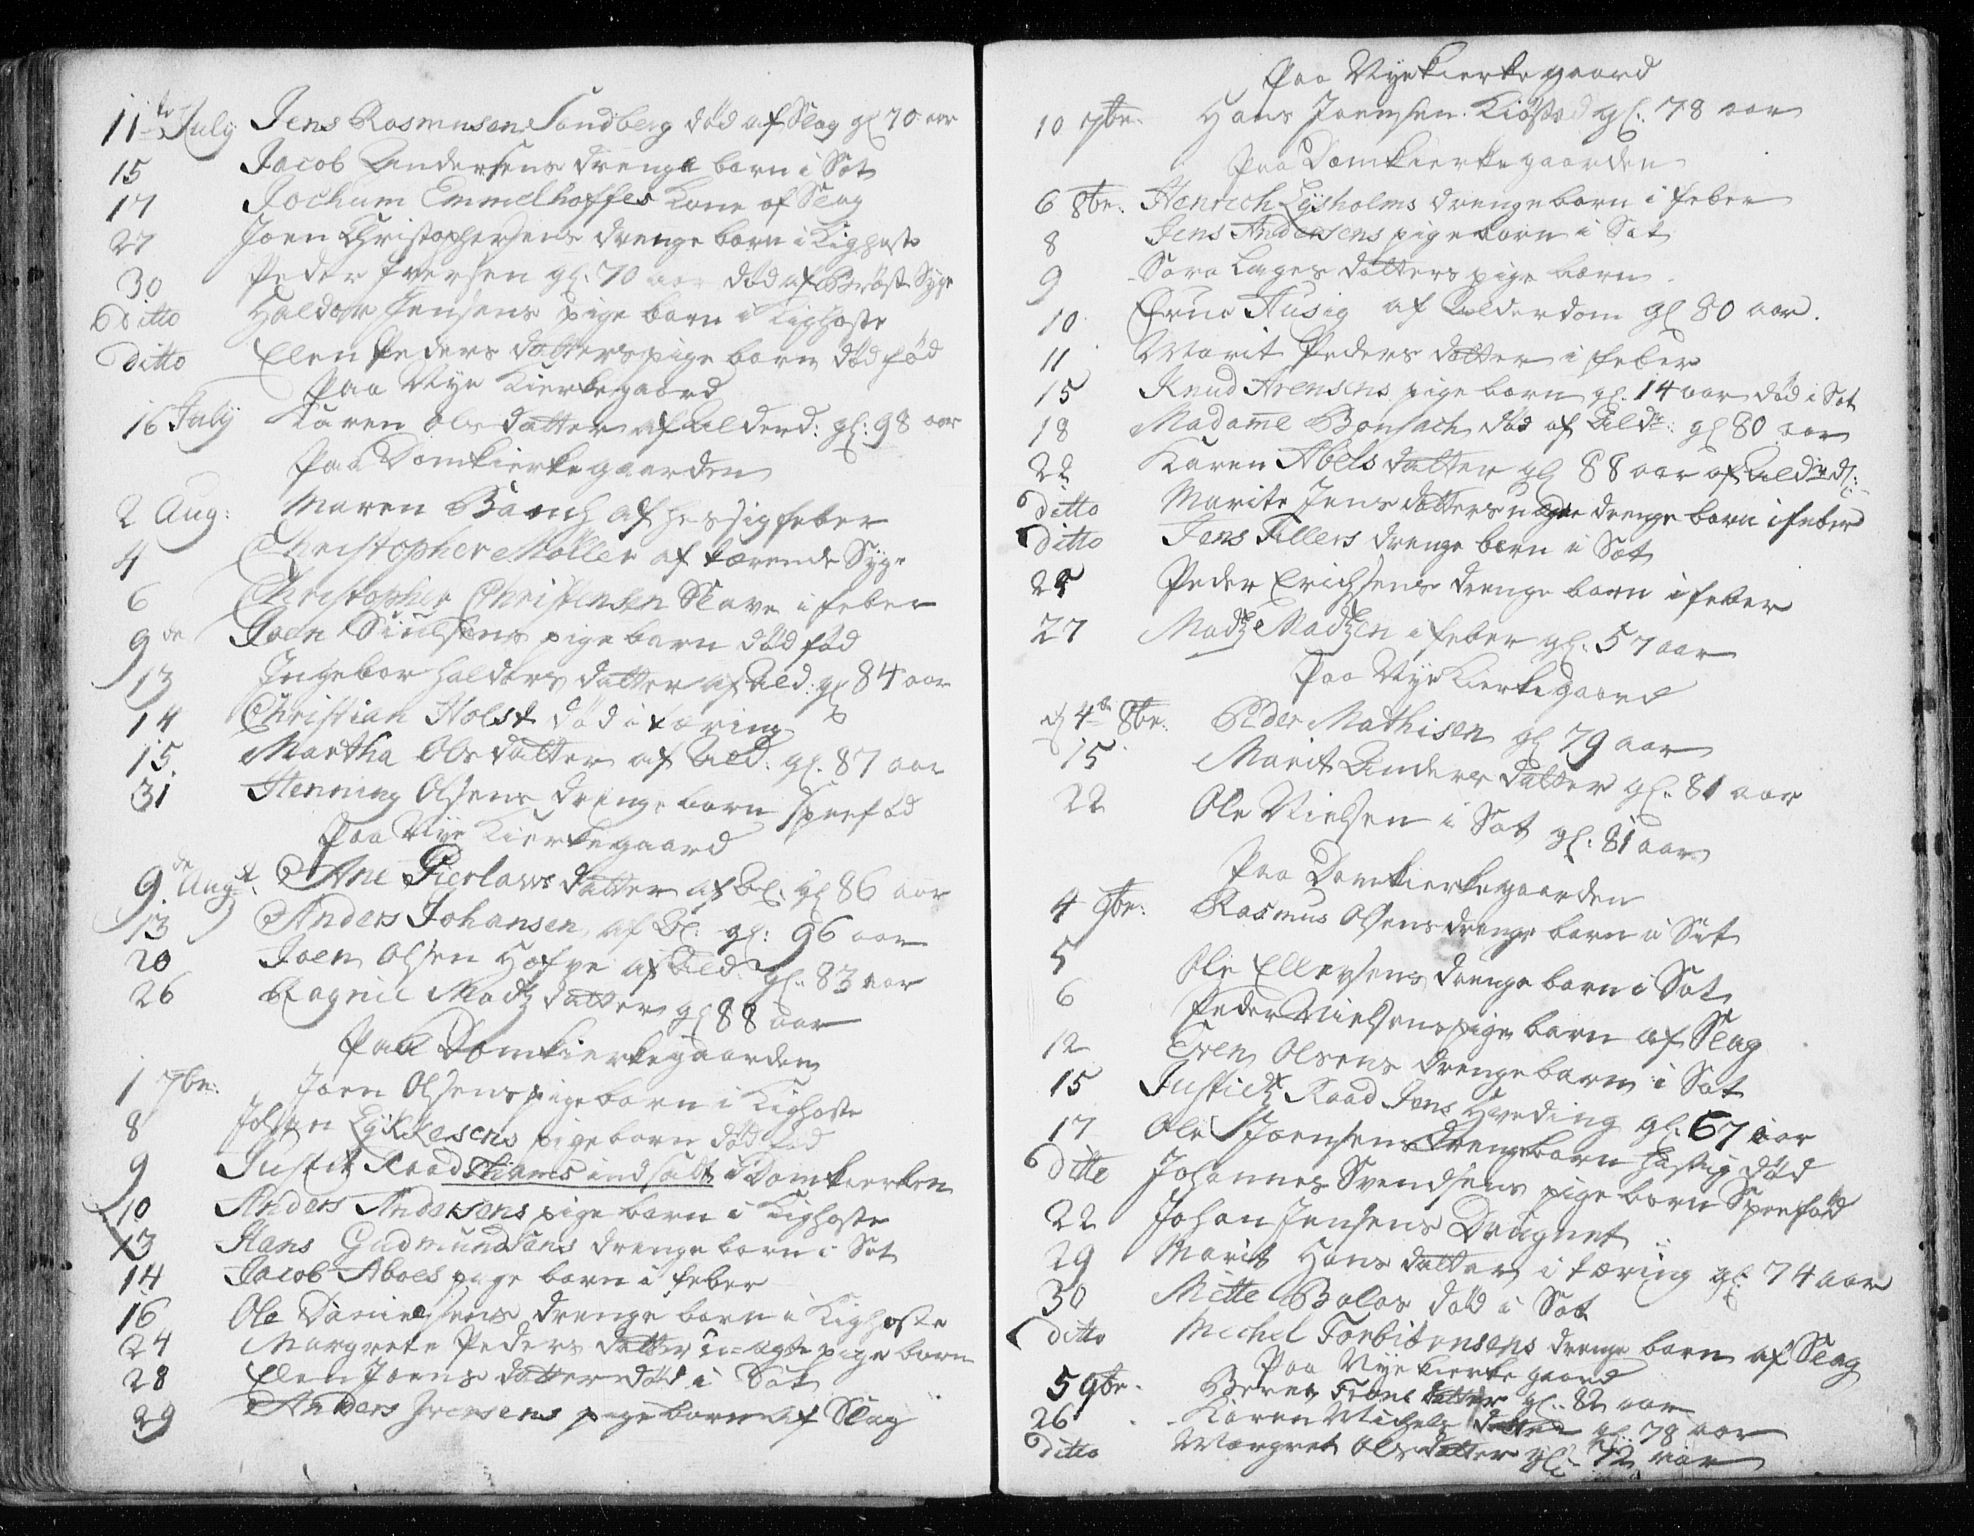 11te July Jens Rasmusen Sandberg død af Slag gl 70 aar
15 Jacob Andersens drenge barn i Sot
17 Jochum Emmelhoffes Kone af Slag
27 Joen Christophersens drenge barn i Kighoste
30 Peder Iversen gl. 70 aar død af Brøst Syge
Ditto Haldor Jensens pige barn i Kighoste
ditto Elen Peders datters pige barn død fød
Paa Nye Kierkegaard
16 July Karen Ols datter af Alderd: gl: 98 aar
Paa Domkierkegaarden
2 Aug: Maren af hessig feber
4 Christopher Møller af tærende Syge
6 Christopher Christensen Slave i feber
9de Joen pige barn død fød
13 Ingebor Haldors datter af Ald: gl 84 aar
14 Christian Holst død i tæring
15 Martha Ols datter af Ald. gl. 87 aar
31 Henning Olsens drenge barn spæfød
Paa Nye Kierkegaard
9de Augst. Ane datter af Al: gl 86 aar
13 Anders Johansen af Al: gl: 96 aar
20 Joen Olsen af Ald: gl. 83 aar
26 Ragnil Madtz datter gl 88 aar
Paa Domkierkegaarden
1 7br: Joen Olsens pige barn i Kighoste
8 Johan pige barn død fød
9 Justit Raad Thams indsadt i Domkierken
10 Anders Andersens pige barn i Kighoste
13 Hans Gudmundsens drenge barn i Sot
14 Jacob Aboes pige barn i feber
16 Ole Danielsens drenge barn i Kighoste
24 Margrete Peders datter u=ægte pige barn
28 Elen Joens datter død i Sot
29 Anders Iversens pige barn af Slag
Paa Nye kierke gaard
10 7br. Hans Joensen gl. 78 aar
Paa Domkierkegaarden
6 8br. Henrich Lysholms drenge barn i feber
8 Jens Andersens pige barn i Sot
9 Sara Lages datters pige barn
10 Husig af Alderdom gl 80 aar.
11 Marit Peders datter i feber
15 Knud Arensens pige barn gl. 14 aar død i Sot
18 Madame død af Ald: gl 80 aar
22 Karen Abels datter gl 88 aar af
ditto Marite Jens datters uægte drenge barn i feber
ditto Jens Tillers drenge barn i Sot
25 Peder Erichsens drenge barn i feber
27 Madtz Madtzen i feber gl. 57 aar
Paa Nye Kierkegaard
d 4de 8br. Peder Mathisen gl 79 aar
15 Marit Anders datter gl. 81 aar
22 Ole Nielsen i Sot gl. 81 aar
Paa Domkierkegaarden
4 9br: Rasmus Olsens drenge barn i Sot
5 Ole Ellevsens drenge barn i Sot
6 Peder Nielsens pige barn af Slag
12 Even Olsens drenge barn i Sot
15 Justitz Raad Jens Hveding gl. 67 aar
17 Ole Joensens drenge barn hastig død
ditto Johannes Svendsens pige barn Spæfød
22 Johan Jensens
29 Marit Hans datter i tæring gl. 74 aar
30 Mette død i Sot
ditto Michel Torbitensens drenge barn af Slag
Paa Nye kierke gaard
5 9br. datter gl. 82 aar
26 Karen Michels datter gl. 78 aar
ditto Margret Ols datter gl. 72 aar